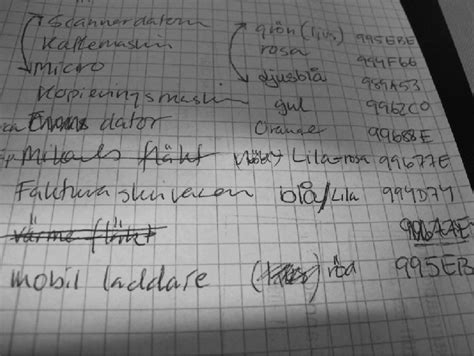 Scannerdatorn grön (ljus) 995EBE
Kaffemaskin rosa 994F66
Micro ljusblå 989A53
Kopieringsmaskin gul 9962C0
dator Orange 99688E
fläkt Lila-rosa 99677E
Fakturaskrivaren blå/Lila 994D74
värme fläkt
mobil laddare röa 995EB